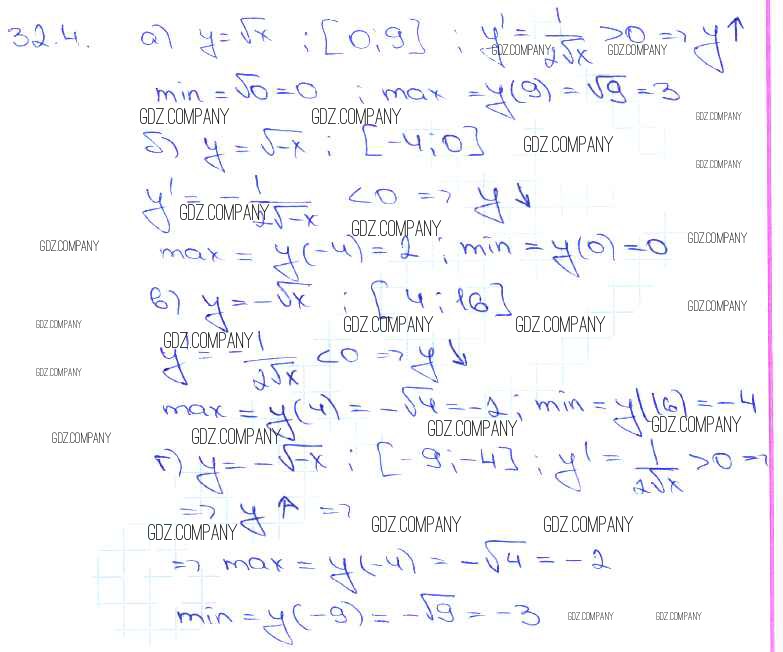 32.4. а) y = √x ; [0; 9] ; y' = 1/(2√x) > 0 => y↑
GDZ.COMPANY GDZ.COMPANY
min = √0 = 0 ; max = y(9) = √9 = 3
GDZ.COMPANY GDZ.COMPANY GDZ.COMPANY
б) y = √-x ; [-4; 0] GDZ.COMPANY
GDZ.COMPANY
y' = - 1/(2√-x) < 0 => y↓
GDZ.COMPANY GDZ.COMPANY
GDZ.COMPANY max = y(-4) = 2 ; min = y(0) = 0 GDZ.COMPANY
в) y = -√x ; [4; 16] GDZ.COMPANY
GDZ.COMPANY GDZ.COMPANY GDZ.COMPANY
GDZ.COMPANY
y' = - 1/(2√x) < 0 => y↓
GDZ.COMPANY
max = y(4) = -√4 = -2 ; min = y(16) = -4
GDZ.COMPANY GDZ.COMPANY GDZ.COMPANY GDZ.COMPANY
г) y = -√-x ; [-9; -4] ; y' = 1/(2√x) > 0 =>
=> y↑ =>
GDZ.COMPANY GDZ.COMPANY GDZ.COMPANY
=> max = y(-4) = -√4 = -2
min = y(-9) = -√9 = -3 GDZ.COMPANY GDZ.COMPANY